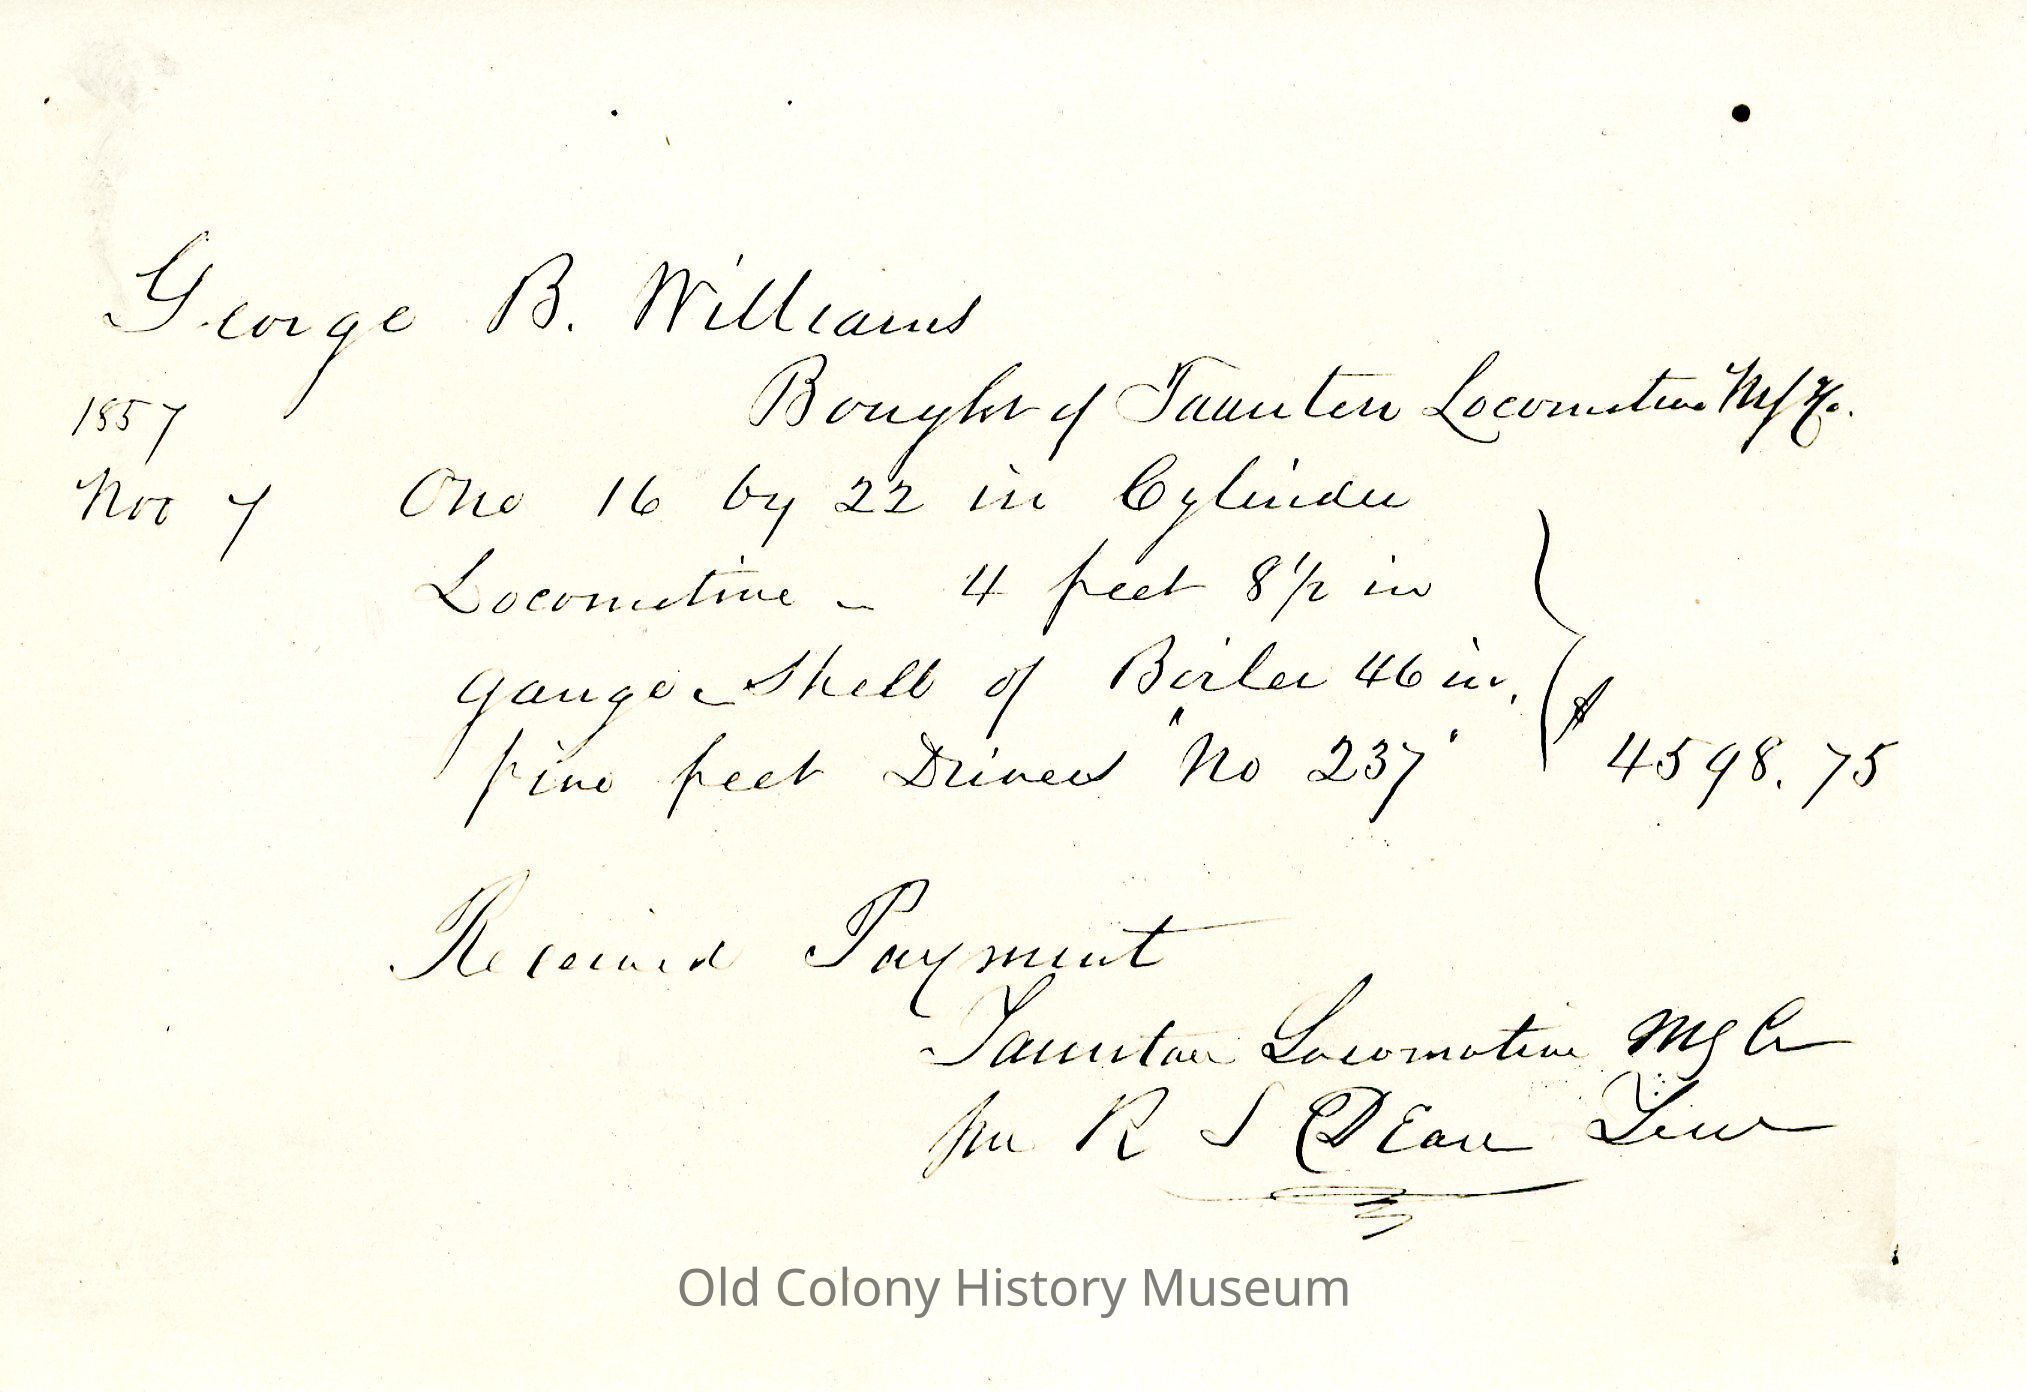 George B. Williams
1857 Bought of Taunton Locomotive Mf Co.
Nov 7 One 16 by 22 in Cylinder
Locomotive - 4 feet 8 1/2 in
gauge - Shell of Boiler 46 in.
five feet Drivers "No 237" $ 4598.75
Received Payment
Taunton Locomotive Mg Co
per R S Dean Treas
Old Colony History Museum